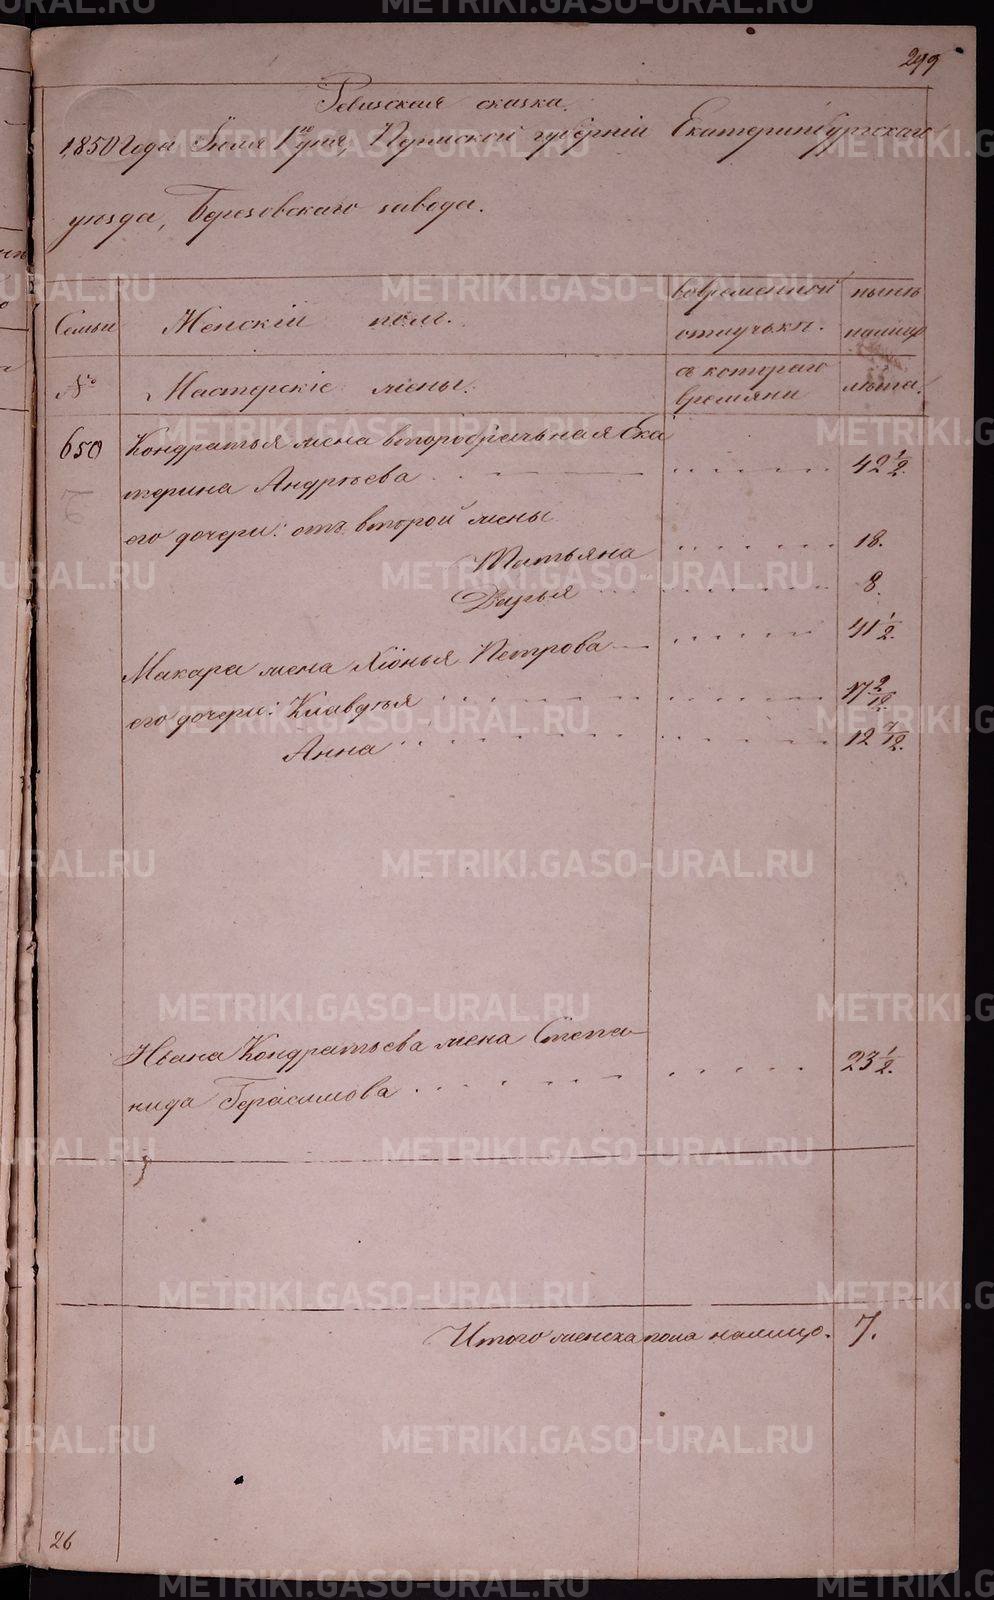 299
Ревизская сказка.
1850 года Июля 1го дня, Пермской губернiи Екатеринбургскаго
уезда, Березовскаго завода.
Семьи Женскiй полъ. вовременной отлучки. ныне налицо
№ Мастерскiе жены. съ котораго времяни лета.
650 Кондратья жена второбрачьная Ека
терина Андреева 42 1/2.
его дочери: отъ второй жены
Татьяна 18.
Дарья 8.
Макара жена Хiонья Петрова 41 1/2.
его дочери: Клавдея 17
Анна 12 7/12.
Ивана Кондратьева жена Степа
нида Герасимова 23 1/2.
Итого женска пола налицо. 7.
26
METRIKI.GASO-URAL.RU